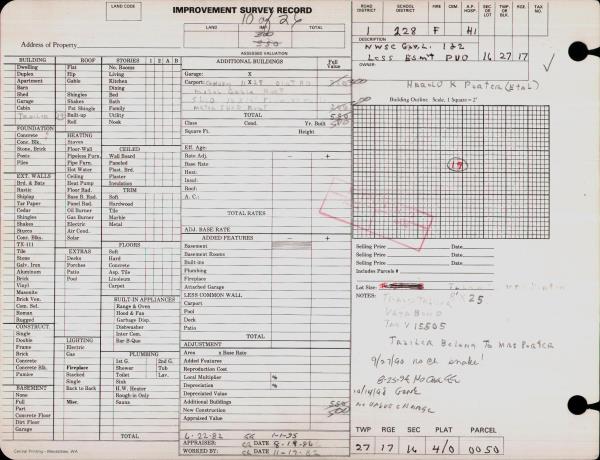 IMPROVEMENT SURVEY RECORD
10 of 26
LAND CODE
LAND
Address of Property
ASSESSED VALUATION
ROAD DISTRICT
SCHOOL DISTRICT
FIRE
CEM.
A.P. HOSP.
SEC OR LOT
TWP. OR BLK.
RGE.
TAX NO.
228 F H1
DESCRIPTION
NWSE Gov. L. 1&2 16 27 17
Less Esmt PUD
OWNER:
Harold K Porter (Etal)
BUILDING
Dwelling
Duplex
Apartment
Barn
Shed
Garage
Cabin
Trailer
FOUNDATION
Concrete
Conc. Blk.
Stone, Brick
Posts
Piles
EXT. WALLS
Brd. & Bats
Rustic
Shiplap
Tar Paper
Cedar
Shingles
Stucco
Conc. Blks.
TX-111
Tile
Galv. Iron
Aluminum
Brick
Vinyl
Masonite
Brick Ven.
Cem. Sel.
Roman
Rugged
CONSTRUCT.
Single
Double
Frame
Brick
Concrete
Concrete Blk.
Pumice
BASEMENT
None
Full
Part
Concrete Floor
Dirt Floor
Garage
ROOF
Flat
Hip
Gable
Shingles
Shakes
Pat Shingle
Built-up
Roll
HEATING
Stoves
Pipeless Furn.
Pipe Furn.
Hot Water
Ceiling
Heat Pump
Floor Rad.
Base B. Rad.
Panel Rad.
Oil Burner
Gas Burner
Electric
Air Cond.
Solar
EXTRAS
Decks
Porches
Patio
Pool
LIGHTING
Electric
Gas
Fireplace
Stacked
Single
Back to Back
Misc.
STORIES 1 2 A B
No. Rooms
Living
Kitchen
Dining
Bed
Bath
Family
Utility
Nook
CEILED
Wall Board
Paneled
Plast. Brd.
Plaster
Insulation
TRIM
Soft
Hardwood
Tile
Marble
Metal
FLOORS
Soft
Hard
Concrete
Asp. Tile
Linoleum
Carpet
BUILT-IN APPLIANCES
Range & Oven
Hood & Fan
Garbage Disp.
Dishwasher
Inter Com.
Bar B-Que
PLUMBING
1st G. 2nd G.
Shower Tub
Toilet Lav.
Sink
H.W. Heater
Rough-in Only
Sauna
TOTAL
ADDITIONAL BUILDINGS
Full Value
Garage: X
Carport: X
TOTAL
Class Cond. Yr. Built
Square Ft. Height
Eff. Age
Rate Adj. − +
Base Rate
Heat:
Insul:
Roof:
A. C.:
TOTAL RATES
ADJ. BASE RATE
ADDED FEATURES − +
Basement
Basement Rooms
Built-ins
Plumbing
Fireplace
Attached Garage
LESS COMMON WALL
Carport
Pool
Deck
Patio
TOTAL
ADJUSTMENT
Area x Base Rate
Added Features
Reproduction Cost
Local Multiplier %
Depreciation %
Depreciated Value
Additional Buildings
New Construction
Appraised Value
6-22-82 1-1-95
APPRAISER: DATE 8-19-86
WORKED BY: DATE 11-17-82
Building Outline: Scale, 1 Square = 2'
19
Selling Price Date
Selling Price Date
Selling Price Date
Includes Parcels #
Lot Size:
NOTES:
Tax V 15505
Trailer Belong To Mrs Porter
9/27/90 no ch
8-25-94
10/14/98 Gone
no value change
TWP RGE SEC PLAT PARCEL
27 17 16 4/0 0050
Central Printing - Wenatchee, WA